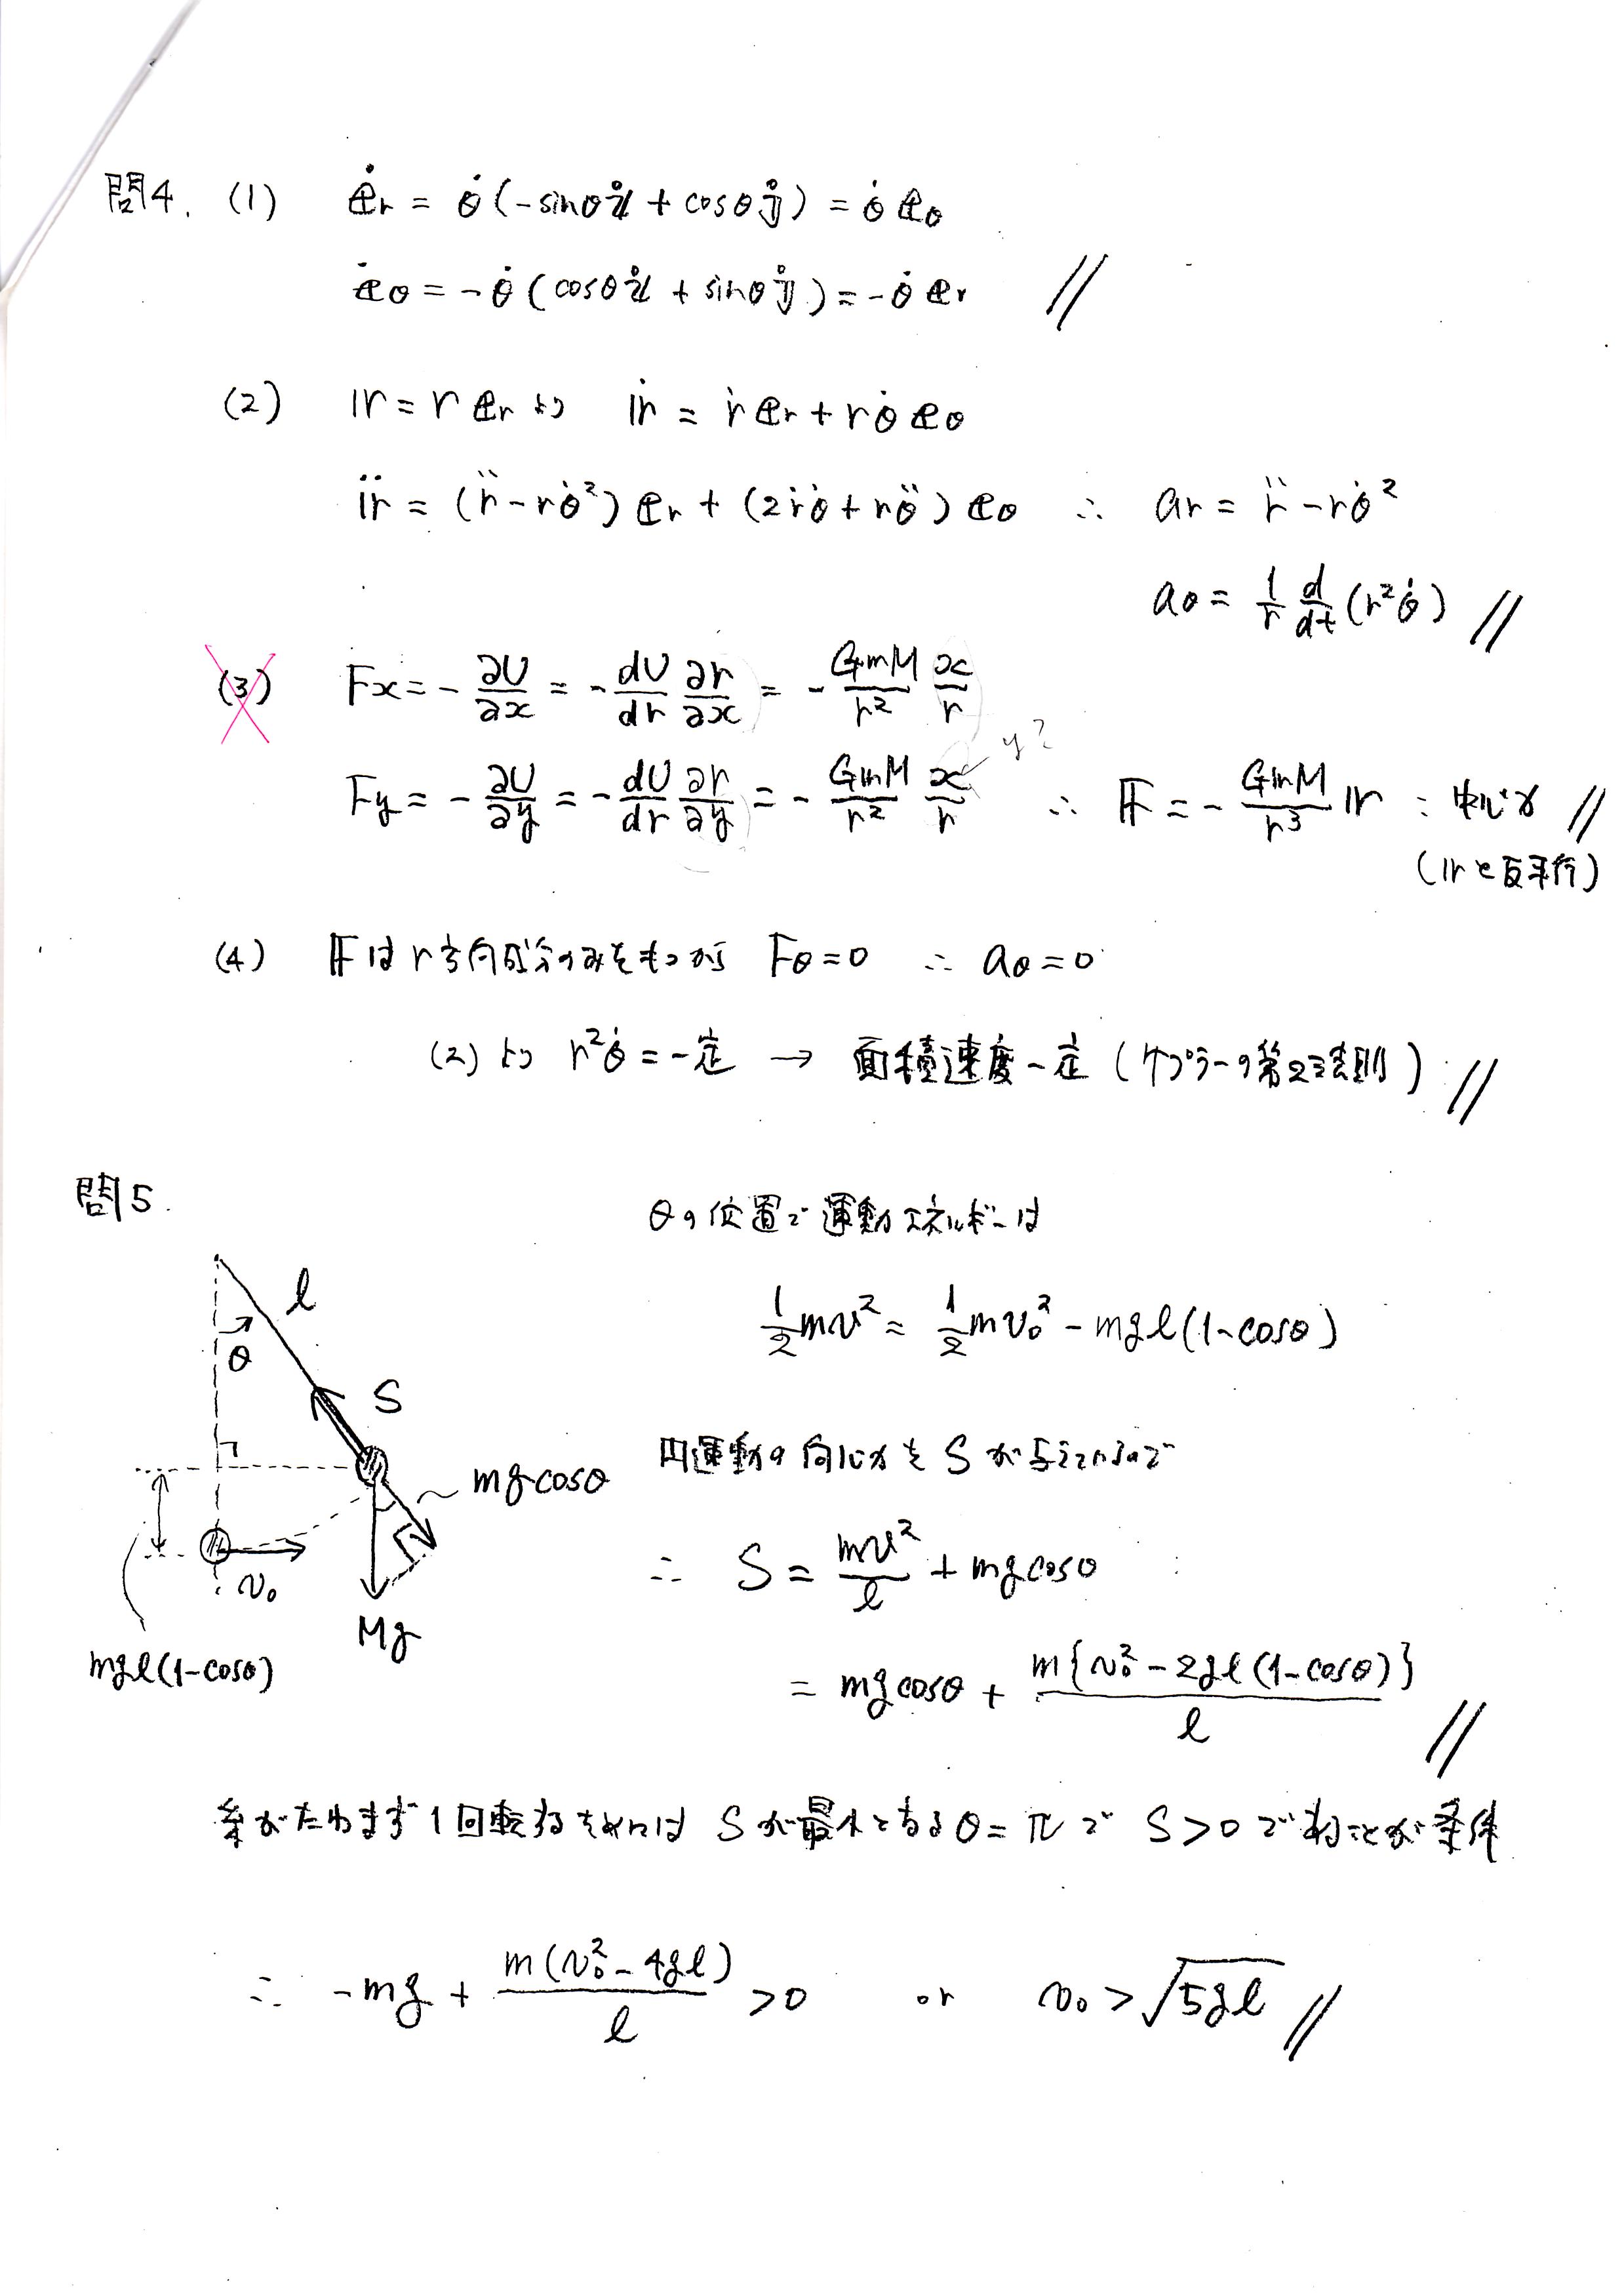 問4. (1) ėr = θ̇(-sinθ i + cosθ j) = θ̇ eθ
ėθ = -θ̇(cosθ i + sinθ j) = -θ̇ er //
(2) r = r er より ṙ = ṙ er + rθ̇ eθ
r̈ = (r̈ - rθ̇²) er + (2ṙθ̇ + rθ̈) eθ ∴ ar = r̈ - rθ̇²
aθ = 1/r d/dt (r²θ̇) //
(3) Fx = - ∂U/∂x = - dU/dr ∂r/∂x = - GmM/r² x/r
y?
Fy = - ∂U/∂y = - dU/dr ∂r/∂y = - GmM/r² x/r ∴ F = - GmM/r³ r : 中心力 //
(rと反平行)
(4) Fはr方向成分のみをもつから Fθ=0 ∴ aθ=0
(2)より r²θ̇ = 一定 → 面積速度一定 (ケプラーの第2法則) //
問5.
θの位置で運動エネルギーは
l
θ
1/2 mv² = 1/2 mv₀² - mgl(1-cosθ)
S
円運動の向心力をSが与えているので
mgcosθ
v₀
∴ S = mv²/l + mgcosθ
Mg
mgl(1-cosθ)
= mgcosθ + m{v₀² - 2gl(1-cosθ)}/l //
糸がたわまず1回転するためには Sが最小となるθ=πで S>0であることが条件
∴ -mg + m(v₀² - 4gl)/l > 0 or v₀ > √5gl //